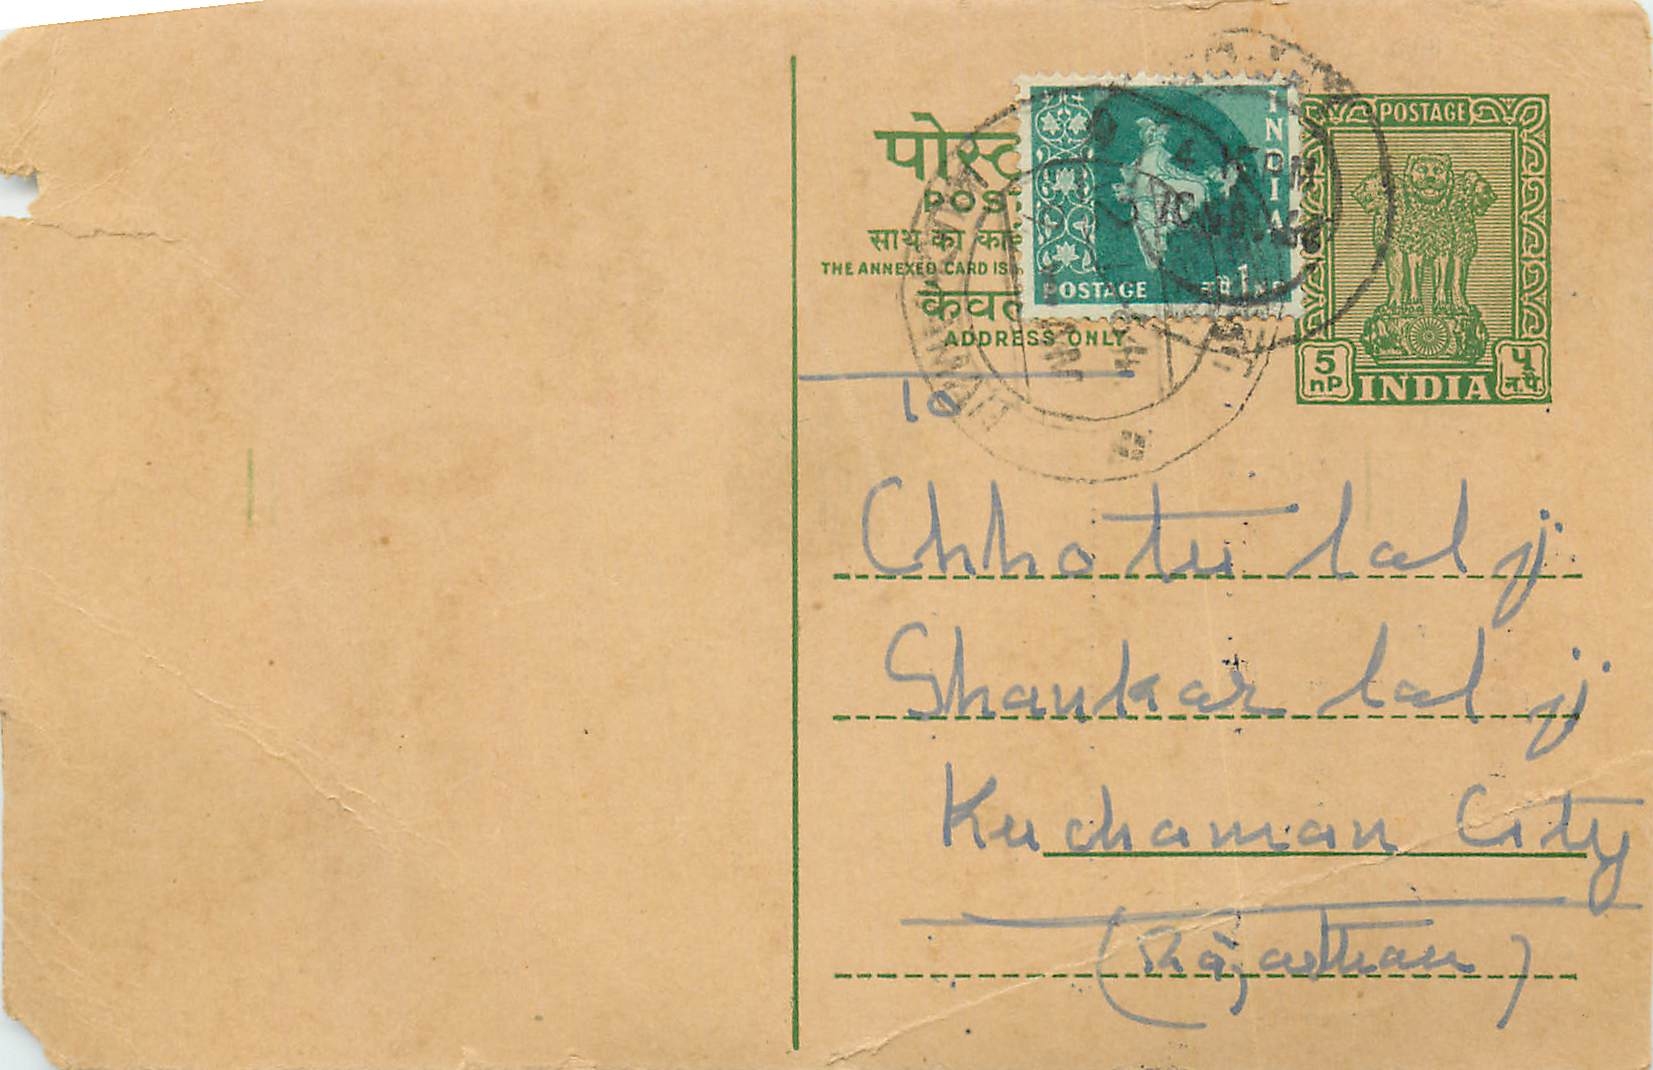 पोस्ट
POST
साथ का कार्ड
THE ANNEXED CARD IS
केवल
ADDRESS ONLY
INDIA
POSTAGE
1
POSTAGE
5
nP
INDIA
५
न.पै.
To
Chhotu lal ji
Shankar lal ji
Kuchaman City
(Rajasthan)